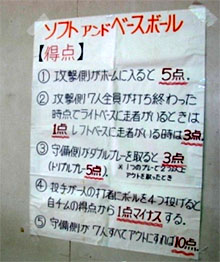 ソフトアンドベースボール
【得点】
① 攻撃側がホームに入ると 5点.
② 攻撃側 7人全員が打ち終わった
時点でライトベースに走者がいるときは
1点 レフトベースに走者がいる時は 3点
③ 守備側がダブルプレーを取ると 3点
(トリプルプレー 5点). ※1つのプレーで2つ以上
アウトを取ったとき
④ 投手が一人の打者にボールを4つ投げると
自チームの得点から 1点マイナスする.
⑤ 守備側が 7人すべてアウトにすれば 10点.